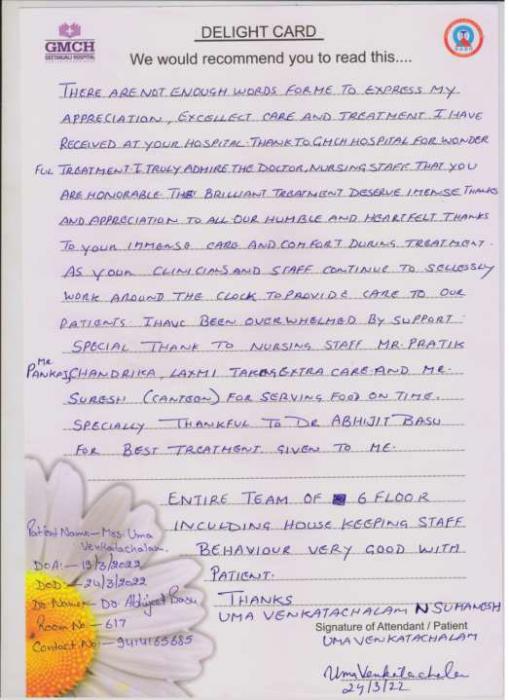 GMCH
GEETANJALI HOSPITAL
DELIGHT CARD
We would recommend you to read this....
THERE ARE NOT ENOUGH WORDS FOR ME TO EXPRESS MY
APPRECIATION, EXCELLECT CARE AND TREATMENT I HAVE
RECEIVED AT YOUR HOSPITAL. THANK TO GMCH HOSPITAL FOR WONDER
FUL TREATMENT I TRULY ADMIRE THE DOCTOR, NURSING STAFF THAT YOU
ARE HONORABLE. THE BRILLIANT TREATMENT DESERVE IMENSE THANKS
AND APPRECIATION TO ALL OUR HUMBLE AND HEARTFELT THANKS
TO YOUR IMMENSE CARE AND COMFORT DURING TREATMENT.
AS YOUR CLINICIANS AND STAFF CONTINUE TO SELLESSLY
WORK AROUND THE CLOCK TO PROVIDE CARE TO OUR
PATIENTS. I HAVE BEEN OVERWHELMED BY SUPPORT.
SPECIAL THANK TO NURSING STAFF MR. PRATIK
MR PANKAJ, CHANDRIKA, LAXMI TAKING EXTRA CARE AND MR.
SURESH (CANTEEN) FOR SERVING FOOD ON TIME.
SPECIALLY THANKFUL TO DR ABHIJIT BASU
FOR BEST TREATMENT GIVEN TO ME.
ENTIRE TEAM OF 6 FLOOR
INCULDING HOUSE KEEPING STAFF
BEHAVIOUR VERY GOOD WITH
PATIENT.
THANKS
UMA VENKATACHALAM N SUMANESH
Signature of Attendant / Patient
UMA VENKATACHALAM
Uma Venkatachalam
24/3/22
Patient Name - Mrs. Uma
Venkatachalam.
DOA:- 19/3/2022
DOD:- 24/3/2022
Dr Name - Dr Abhijeet Basu
Room No - 617
Contact No - 9414165685